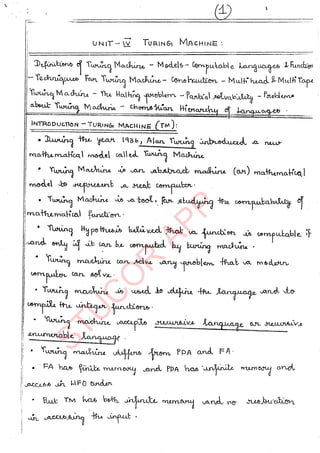 1
UNIT - IV TURING MACHINE :
Definitions of Turing Machine - Models - Computable Languages & Function
- Techniques For Turing Machine - Construction - Multi head & Multi Tape
Turing Machine - The Halting problem - Partial solvability - Problems
about Turing Machine - Chomskian Hierarchy of Languages.
INTRODUCTION - TURING MACHINE (TM):
• During the year 1936, Alan Turing introduced a new
mathematical model called Turing Machine
• Turing Machine is an abstract machine (or) mathematical
model to represent a real computer.
• Turing Machine is a tool, for studying the computability of
mathematical function.
• Turing Hypothesis believed that a function is computable if
and only if it can be computed by turing machine.
• Turing machine can solve any problem that a modern
computer can solve.
• Turing machine is used to define the language and to
compile the integer functions.
• Turing machine accepts recursive language or recursive
enumerable language.
• Turing machine differs from PDA and FA.
• FA has finite memory and PDA has infinite memory and
access in LIFO order.
• But TM has both infinite memory and no restriction
in accessing the input.
STUCOR APP